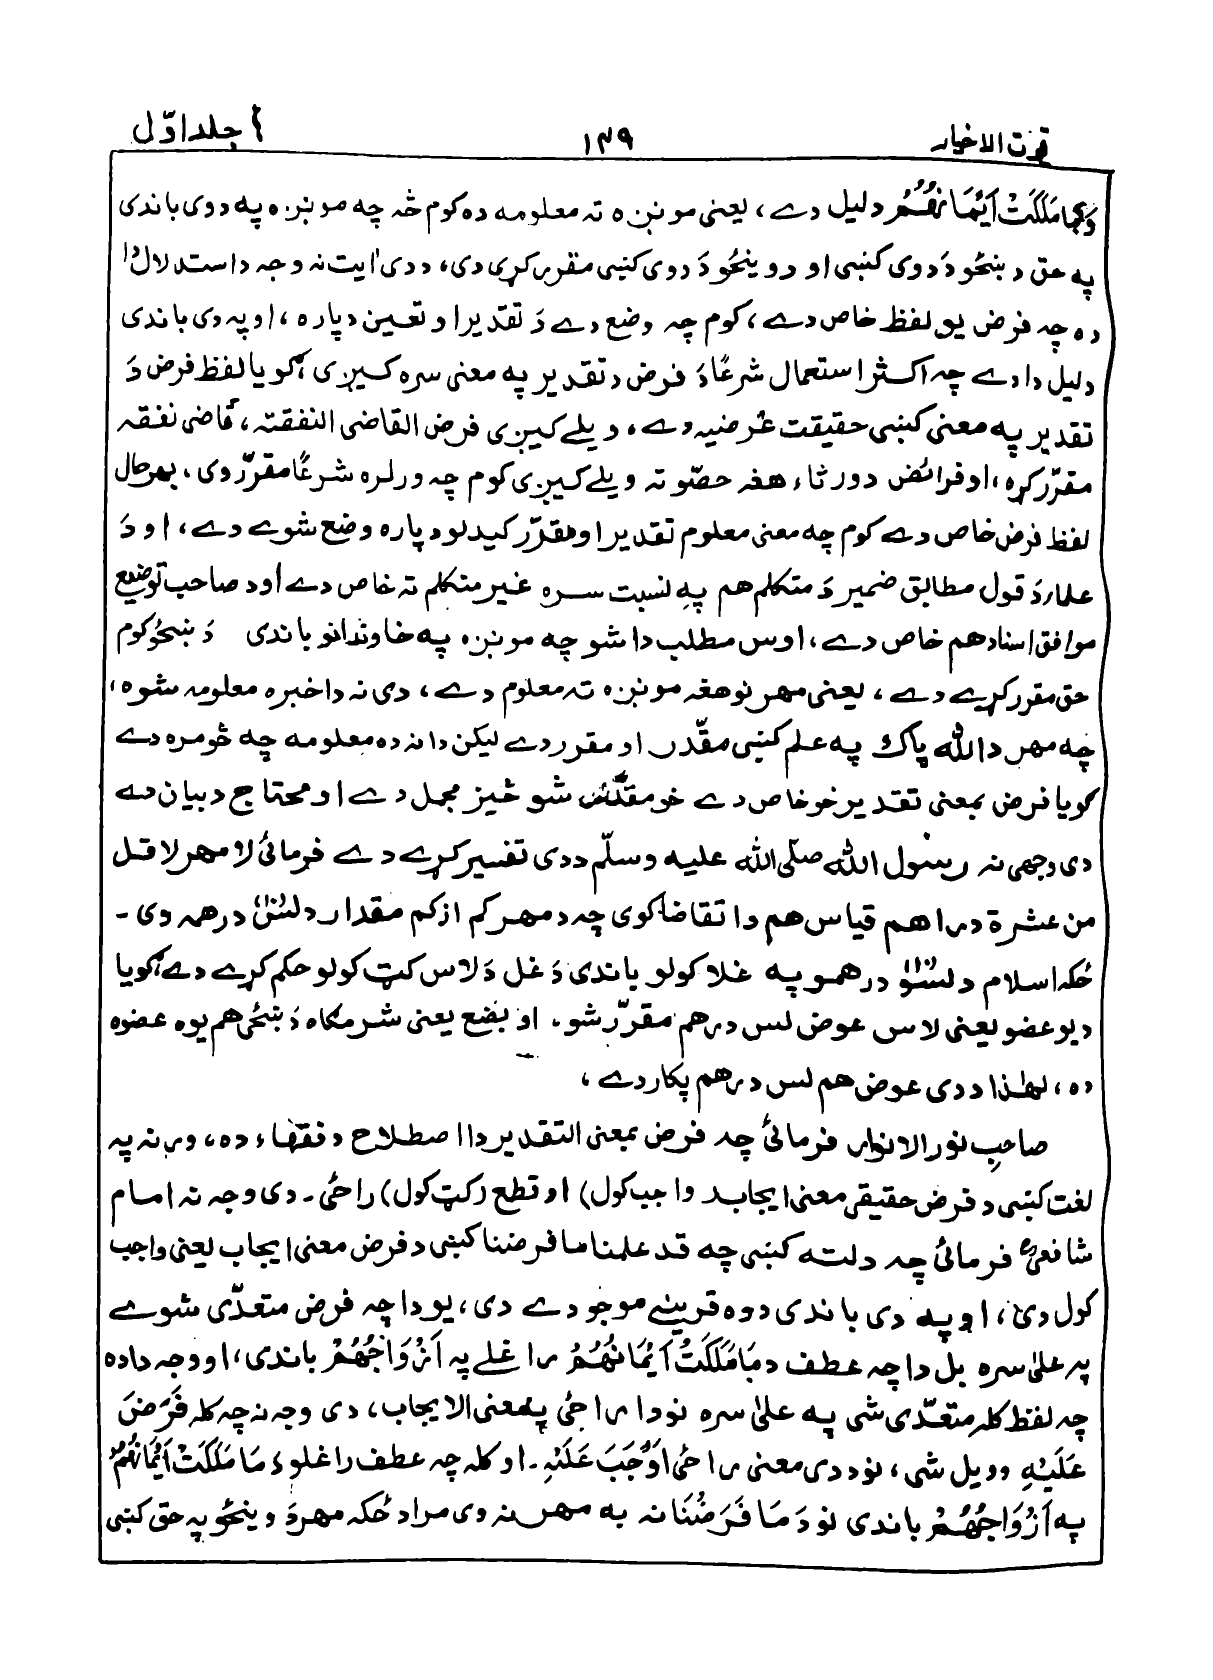 قوت الاخیار ۱۴۹ جلد اوّل
وَمَا مَلَكَتْ اَيْمَانُهُمْ دلیل دے، یعنی مونږہ تہ معلومہ دہ کوم څہ چہ مونږہ پہ دوی باندی
پہ حق د ښځو دَ دوی کښی او د وینځو دَ دوی کښی مقرر کړی دی، د دی ایت نہ وجہ د استدلال دا
دہ چہ فرض یو لفظ خاص دے، کوم چہ وضع دے دَ تقدیر او تعین دپارہ، او پہ دی باندی
دلیل دا دے چہ اکثر استعمال شرعًا دَ فرض د تقدیر پہ معنی سرہ کیږی، گویا لفظ فرض دَ
تقدیر پہ معنی کښی حقیقت عرضیہ دے، ویلے کیږی فرض القاضی النفقتہ، قاضی نفقہ
مقرّر کړہ، او فرائض د ورثاء ھغہ حصّو تہ ویلے کیږی کوم چہ ورلرہ شرعًا مقرّر وی، بھر حال
لفظ فرض خاص دے کوم چہ معنی معلوم تقدیر او مقرّر کیدلو دپارہ وضع شوے دے، او دَ
علماء دَ قول مطابق ضمیر دَ متکلم ھم پہ نسبت سرہ غیر متکلم تہ خاص دے او د صاحب توضیح
موافق اسناد ھم خاص دے، اوس مطلب دا شو چہ مونږہ پہ خاوندانو باندی دَ ښځو کوم
حق مقرر کړے دے، یعنی مھر نو ھغہ مونږہ تہ معلوم دے، دی نہ دا خبرہ معلومہ شوہ،
چہ مھر د اللہ پاک پہ علم کښی مقدّر او مقرر دے لیکن دا نہ دہ معلومہ چہ څومرہ دے
گویا فرض بمعنی تقدیر خو خاص دے خو مقدّر شو څیز مجمل دے او محتاج د بیان دے
دی وجھی نہ رسول اللہ صلّی اللہ علیہ وسلّم د دی تفسیر کړے دے فرمائی لا مھر لا قل
من عشرة دراھم قیاس ھم دا تقاضا کوی چہ د مھر کم از کم مقدار د لسو درھمہ وی -
ځکہ اسلام د لسو درھمو پہ غلا کولو باندی دَ غل دَ لاس کټ کولو حکم کړے دے، گویا
د یو عضو یعنی لاس عوض لس درھم مقرّر شو، او بضع یعنی شرمگاہ دَ ښځی ھم یوہ عضوہ
دہ، لھٰذا د دی عوض ھم لس درھم پکار دے،
صاحبِ نور الانوار فرمائی چہ فرض بمعنی التقدیر دا اصطلاح د فقھاء دہ، ورنہ پہ
لغت کښی د فرض حقیقی معنی ایجاب (واجب کول) او قطع (کټ کول) راځی - دی وجہ نہ امام
شافعیؒ فرمائی چہ دلتہ کښی چہ قد علمنا ما فرضنا کښی د فرض معنی ایجاب یعنی واجب
کول دی، او پہ دی باندی دوہ قرینے موجود دے دی، یو دا چہ فرض متعدّی شوے
پہ علیٰ سرہ بل دا چہ عطف د مَا مَلَكَتْ اَيْمَانُهُمْ راغلے پہ اَزْوَاجُهُمْ باندی، او وجہ دا دہ
چہ لفظ کلہ متعدّی شی پہ علیٰ سرہ نو دا راځی پہ معنی الایجاب، دی وجہ نہ چہ کلہ فَرَضَ
عَلَيْهِ وویل شی، نو د دی معنی راځی اَوْجَبَ عَلَيْهِ - او کلہ چہ عطف راغلو دَ مَا مَلَكَتْ اَيْمَانُهُمْ
پہ اَزْوَاجُهُمْ باندی نو دَ مَا فَرَضْنَا نہ بہ مھر نہ وی مراد ځکہ مھر دَ وینځو پہ حق کښی